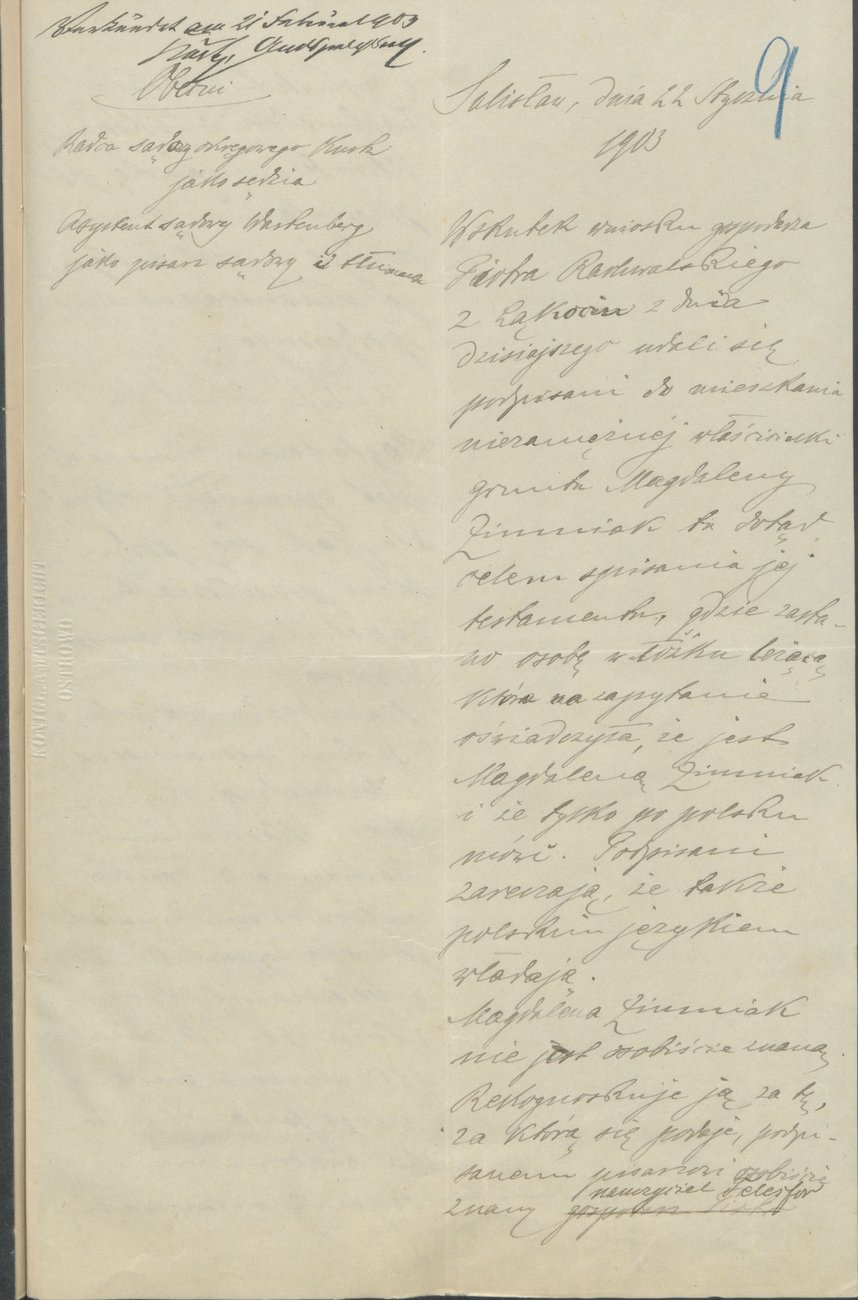 Verkündet am 21 Februar 1903
Obecni
Radca sądu okręgowego Kuske
jako sędzia
Asystent sądowy Wartenberg
jako pisarz sądowy i tłumacz
9
Sulisław, dnia 22 Stycznia
1903
Wskutek wniosku gospodarza
Piotra Raduralskiego
z Łąkocin z dnia
dzisiajszego udali się
podpisani do mieszkania
niezamężnéj właścicielki
gruntu Magdaleny
Zimniak tu dotąd,
celem spisania jéj
testamentu, gdzie zasta-
no osobę w łóżku leżącą
która na zapytanie
oświadczyła, że jest
Magdaleną Zimniak
i że tylko po polsku
mówi. Podpisani
zaręczają, że także
polskim językiem
władają.
Magdalena Zimniak
nie jest osobiście znaną.
Rekognoskuje ją za tę,
za którą się podaje, podpi-
sanem pisarzowi osobiście
nauczyciel Telesfor
znany gospodarz
KÖNIGL. AMTSGERICHT
OSTROWO